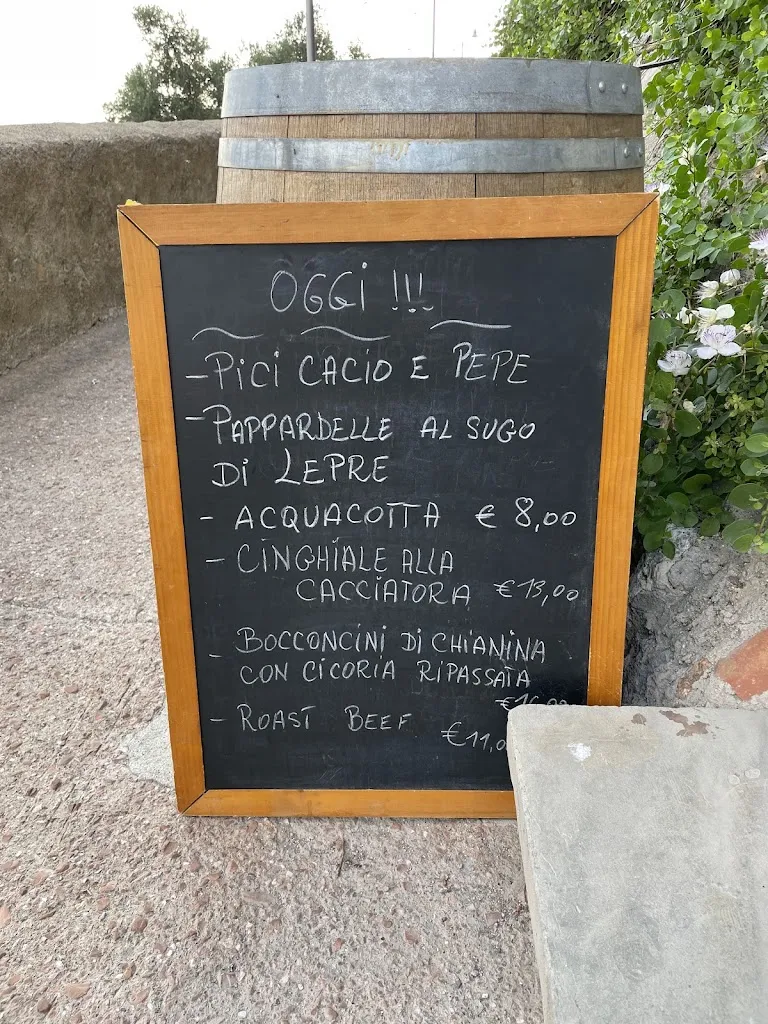 OGGi !!!
- PiCi CACIO E PEPE
- PAPPARDELLE AL SUGO
Di LEPRE
- ACQUACOTTA € 8,00
- CiNGHiALE ALLA
CACCiATORA € 13,00
- BOCCONCiNi Di CHiANiNA
CON CiCORiA RiPASSATA
- ROAST BEEF €11,0